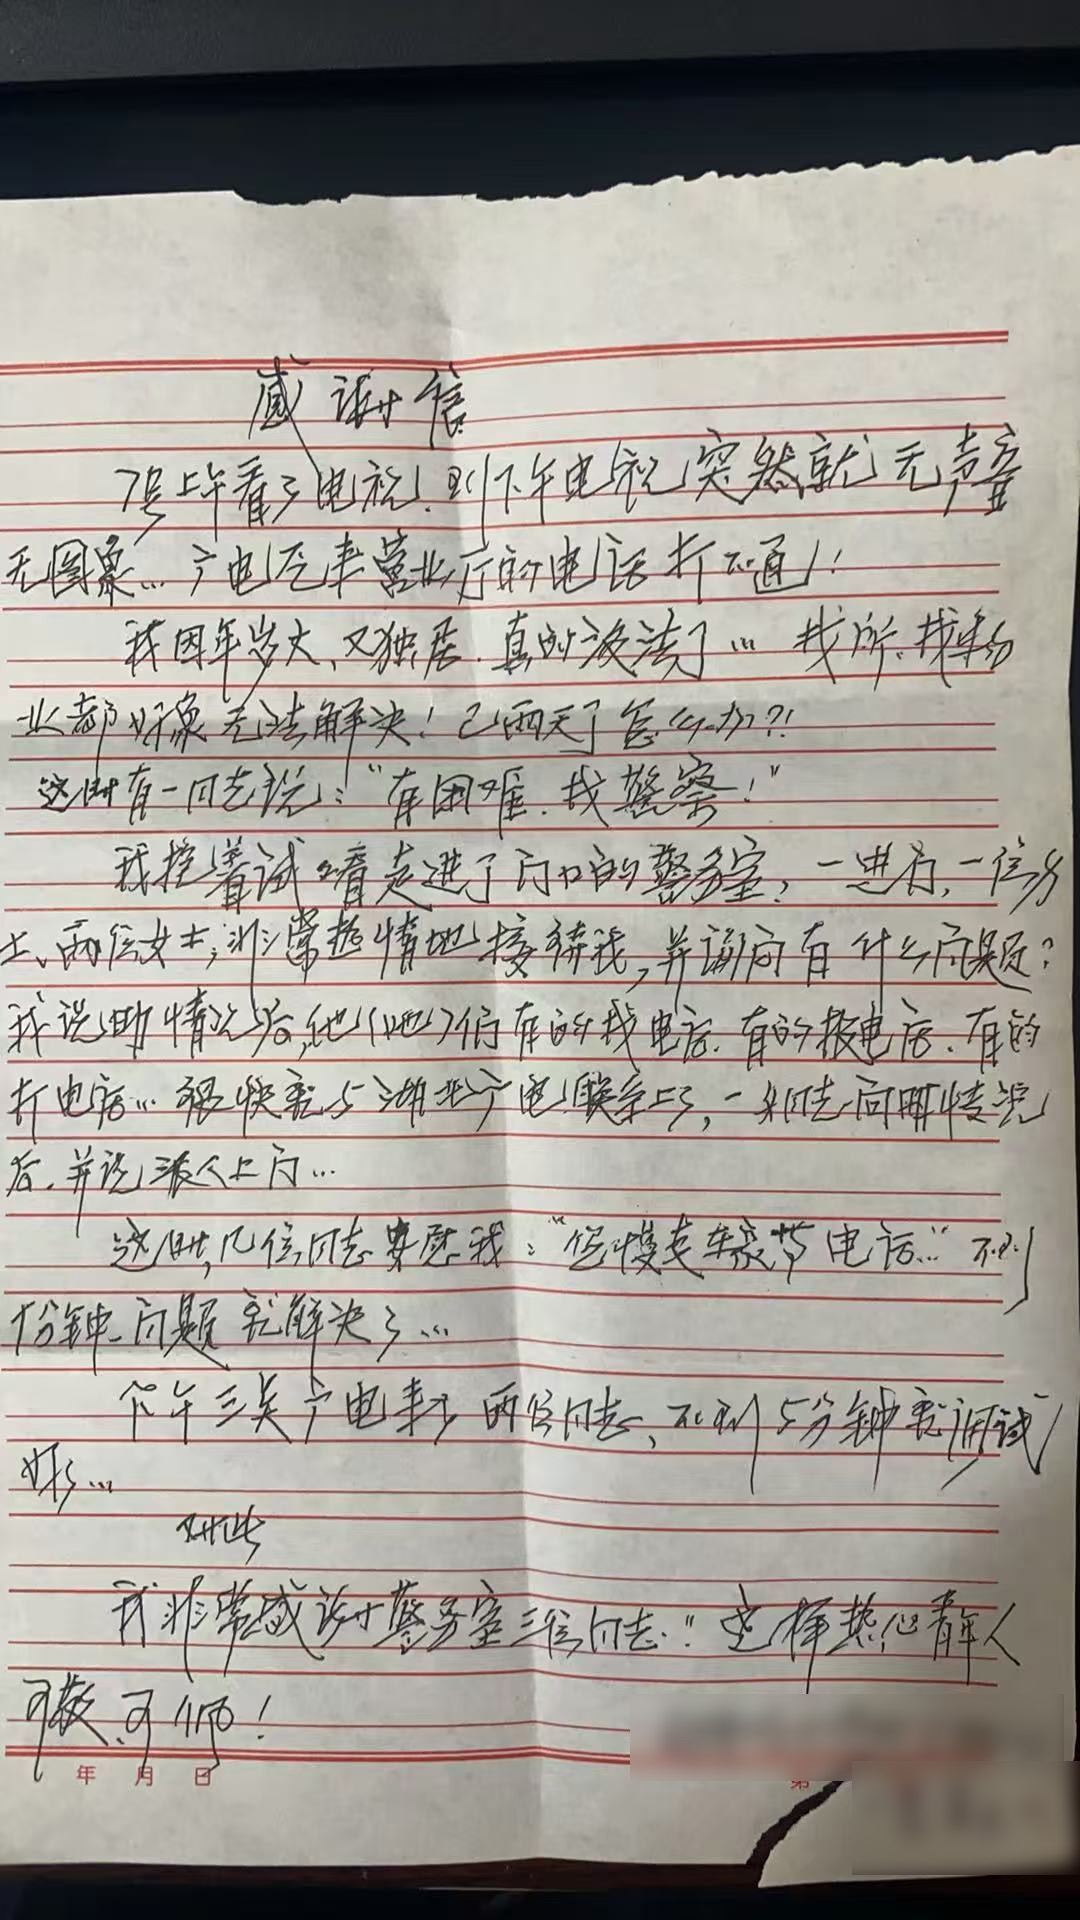 感谢信
7号上午看了电视！到下午电视突然就无声音
无图象…广电汽车营业厅的电话打不通！
我因年岁大、又独居.真的没法了…找所、找物
业都好象无法解决！已两天了怎么办？！
这时有一同志说："有困难.找警察！"
我控着试看走进了门口的警务室，一进门，一位男
士、两位女士，非常热情地接待我，并询问有什么问题？
我说明情况后，他（她）们有的找电话.有的报电话.有的
打电话…很快就与湖北广电联系上了，一女同志问明情况
后.并说派人上门…
这时，几位同志安慰我："您慢走 电话…"不到
十分钟.问题就解决了…
下午三点广电来了两位同志，不到5分钟就调试
好了…
对此
我非常感谢警务室三位同志！！这样热心青年人
可敬、可师！
年 月 日
第